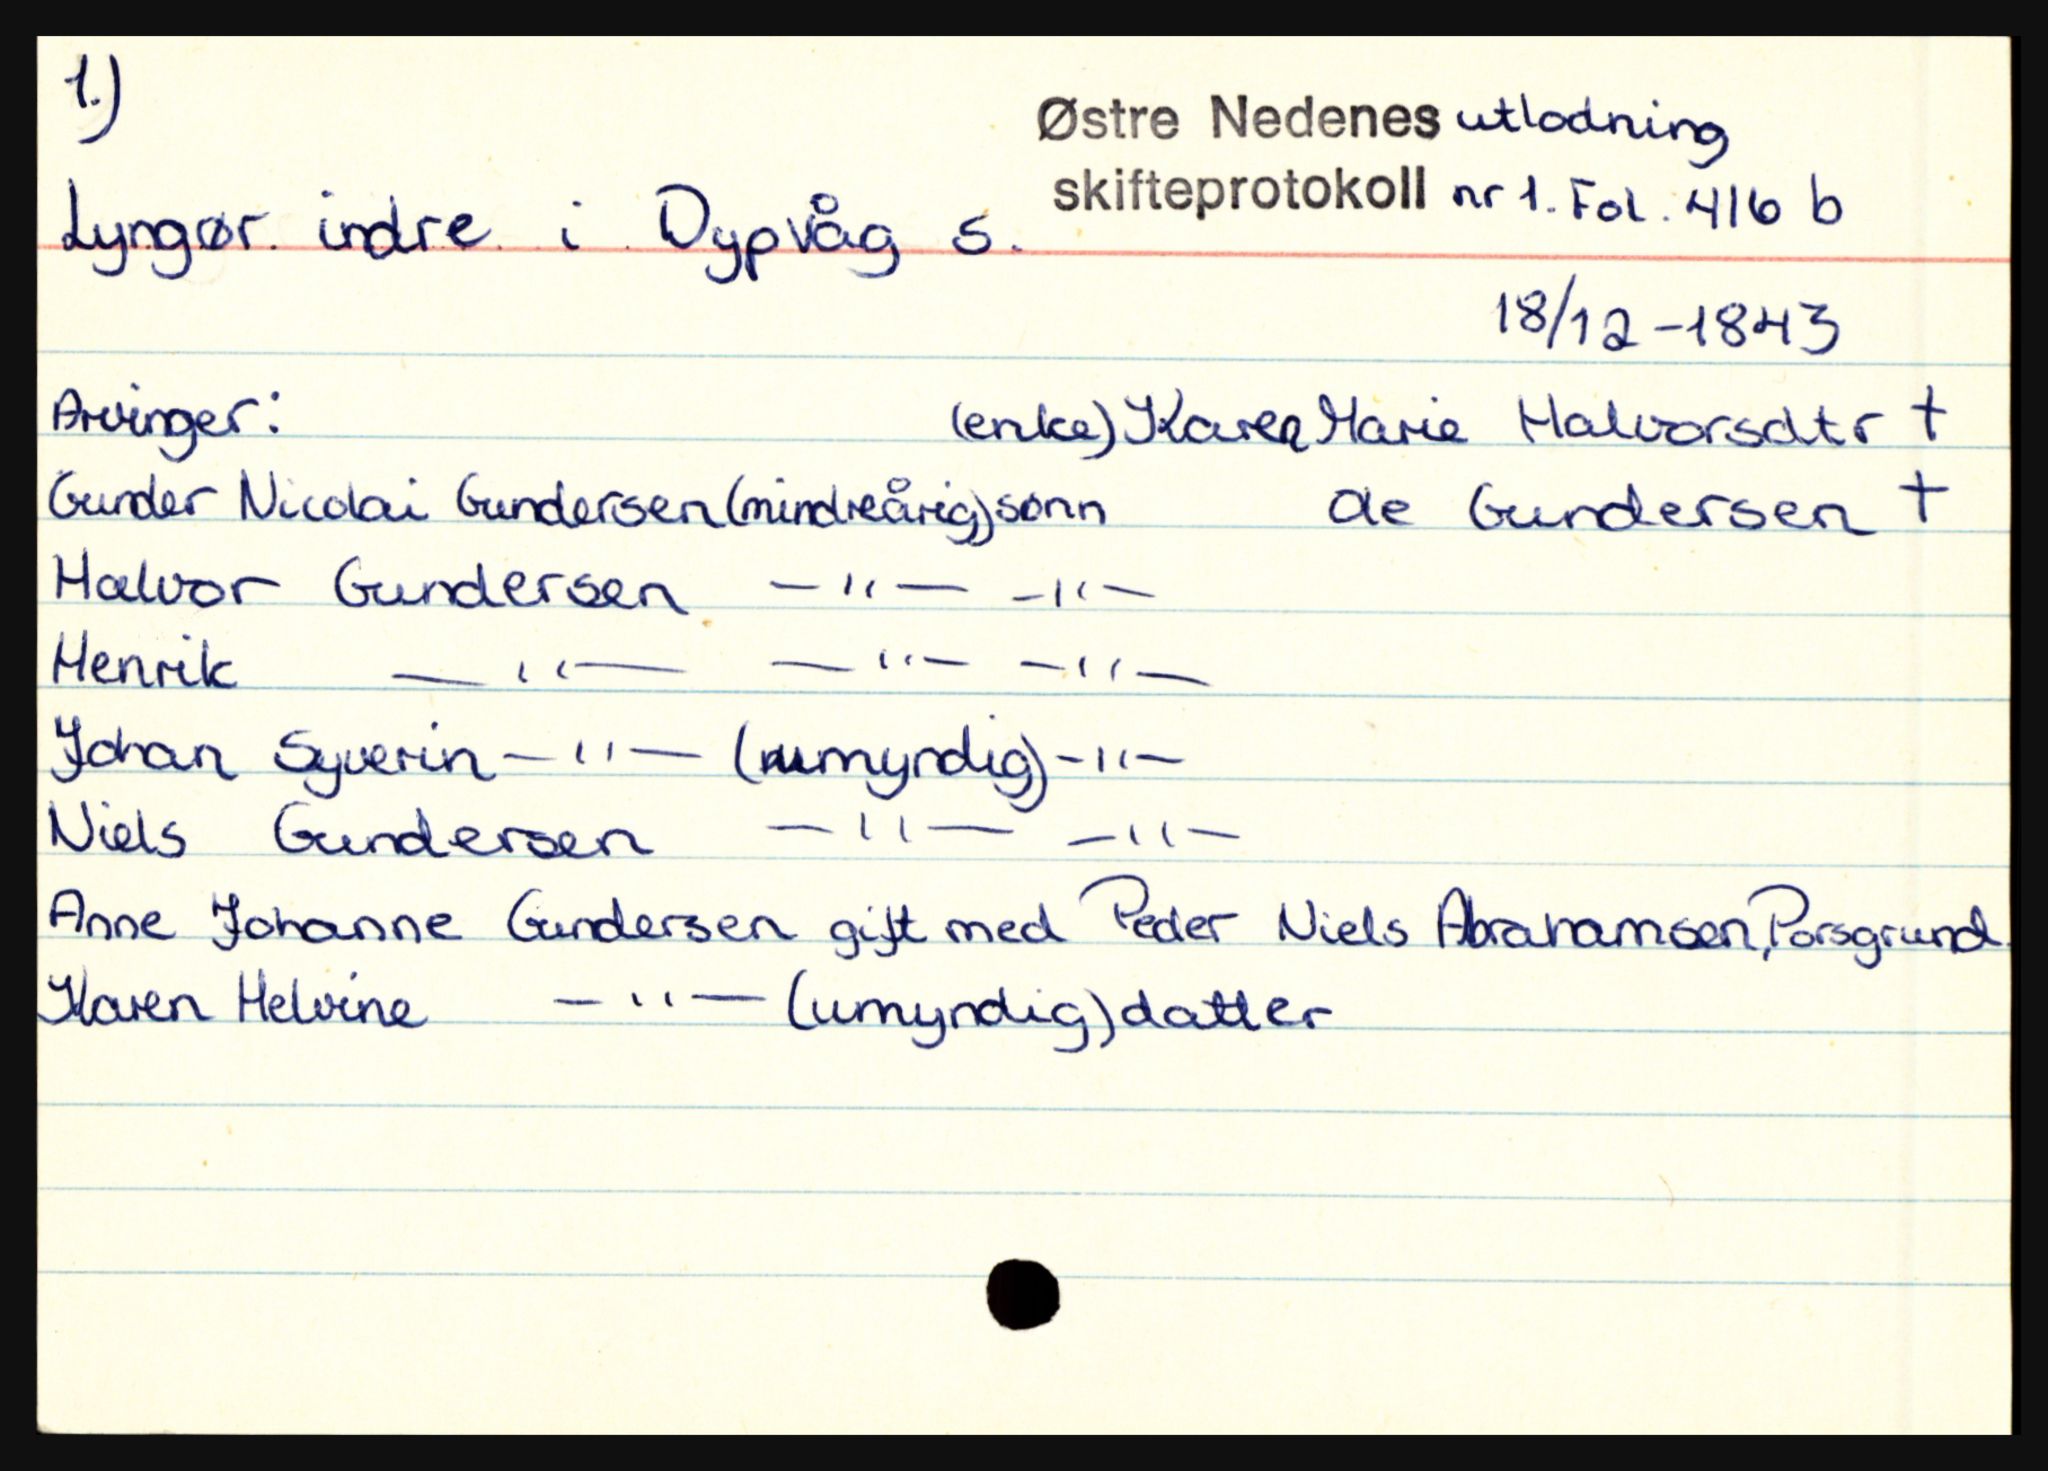 1.)
Østre Nedenes utlodning
skifteprotokoll nr 1. Fol. 416 b
Lyngør indre i Dypvåg s.
18/12-1843
Arvinger: (enke) Karen Marie Halvorsdtr †
Gunder Nicolai Gundersen (mindreårig) sønn Ole Gundersen †
Halvor Gundersen —"— —"—
Henrik —"— —"— —"—
Johan Syverin —"— (umyndig) —"—
Niels Gundersen —"— —"—
Anne Johanne Gundersen gift med Peder Niels Abrahamsen, Porsgrund.
Karen Helvine —"— (umyndig) datter